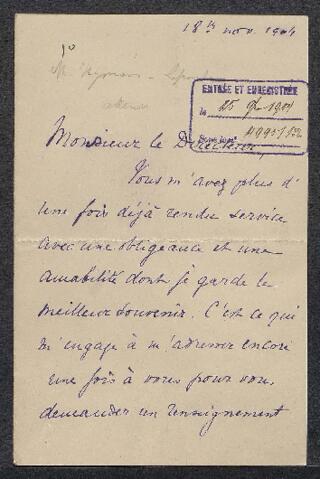 18 nov. 1904
ENTRÉE ET ENREGISTRÉE
le 25 1904
Monsieur le Directeur,
Vous m'avez plus d'
une fois déjà rendu service
avec une obligeance et une
amabilité dont je garde le
meilleur souvenir. C'est ce qui
m'engage à m'adresser encore
une fois à vous pour vous
demander un renseignement